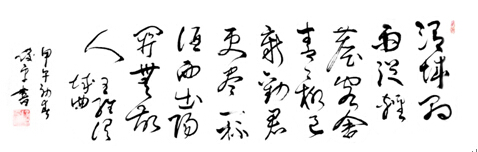 渭城朝
雨浥輕
塵客舍
青々柳色
新勸君
更盡一杯
酒西出陽
關無故
人
王維渭
城曲
甲午初春
書